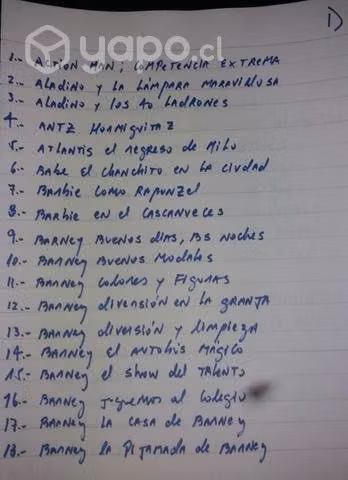 1)
yapo.cl
1.- ACTION MAN; COMPETENCIA EXTREMA
2.- ALADINO Y LA LÁMPARA MARAVILLOSA
3.- ALADINO Y LOS 40 LADRONES
4.- ANTZ HORMIGUITAZ
5.- ATLANTIS el REGRESO de MILO
6.- BABE EL CHANCHITO EN LA CIUDAD
7.- BARBIE COMO RAPUNZEL
8.- BARBIE EN el CASCANUECES
9.- BARNEY BUENOS DIAS, BS NOCHES
10.- BARNEY BUENOS MODALES
11.- BARNEY COLORES Y FIGURAS
12.- BARNEY DIVERSIÓN EN LA GRANJA
13.- BARNEY DIVERSIÓN Y LIMPIEZA
14.- BARNEY EL AUTOBÚS MÁGICO
15.- BARNEY EL SHOW del TALENTO
16.- BARNEY JUGUEMOS AL COLEGIO
17.- BARNEY LA CASA de BARNEY
18.- BARNEY LA PIJAMADA de BARNEY